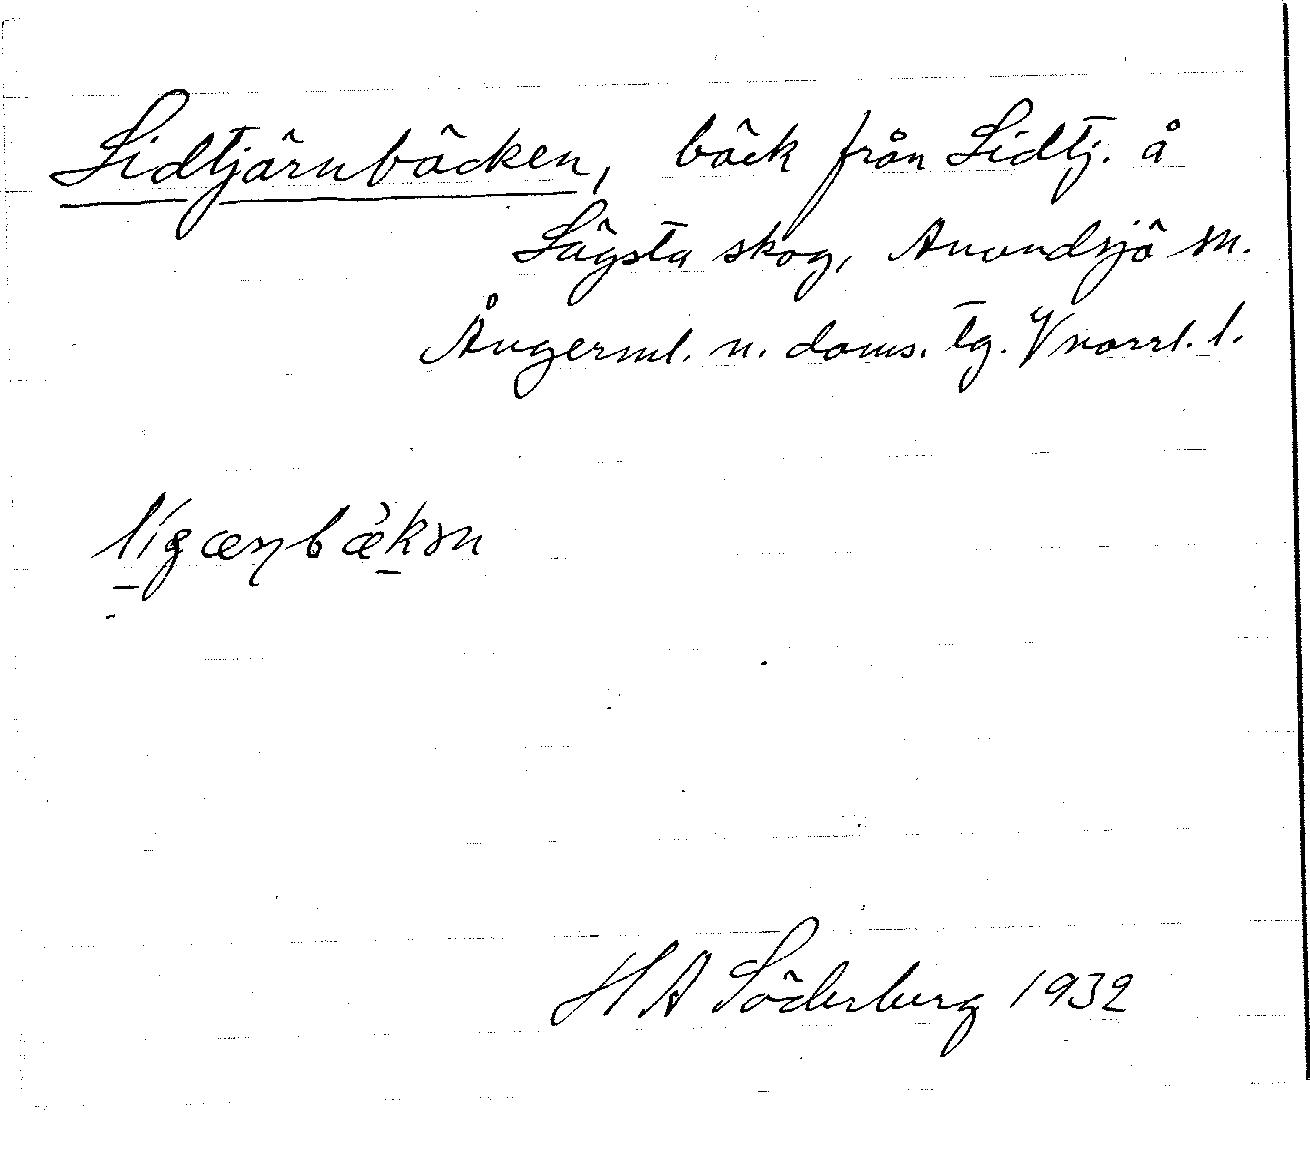 Lidtjärnbäcken, bäck från Lidtj. å
Lägsta skog, Anundsjö sn.
Ångerml. n. doms. tg. V norrl. l.
H A Söderberg 1932